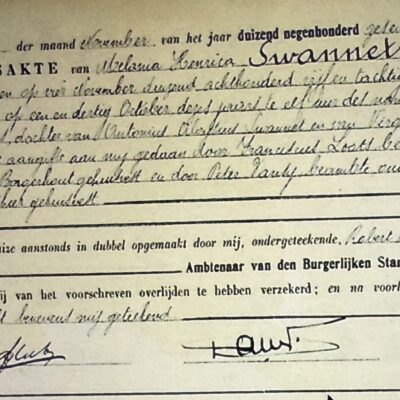 der maand November van het jaar duizend negenhonderd
SAKTE van Melania Henrica Swannet
en op vier November duizend achthonderd vijf en tachtig
op een en dertig October dezes jaars te elf uur des
dochter van Antonius Swannet en van
aangifte aan mij gedaan door Franciscus
Borgerhout gehuisvest en door Peter beambte oud
gehuisvest
aanstonds in dubbel opgemaakt door mij, ondergeteekende, Robert
Ambtenaar van den Burgerlijken Stan
ij van het voorschreven overlijden te hebben verzekerd; en na voorl
benevens mij geteekend